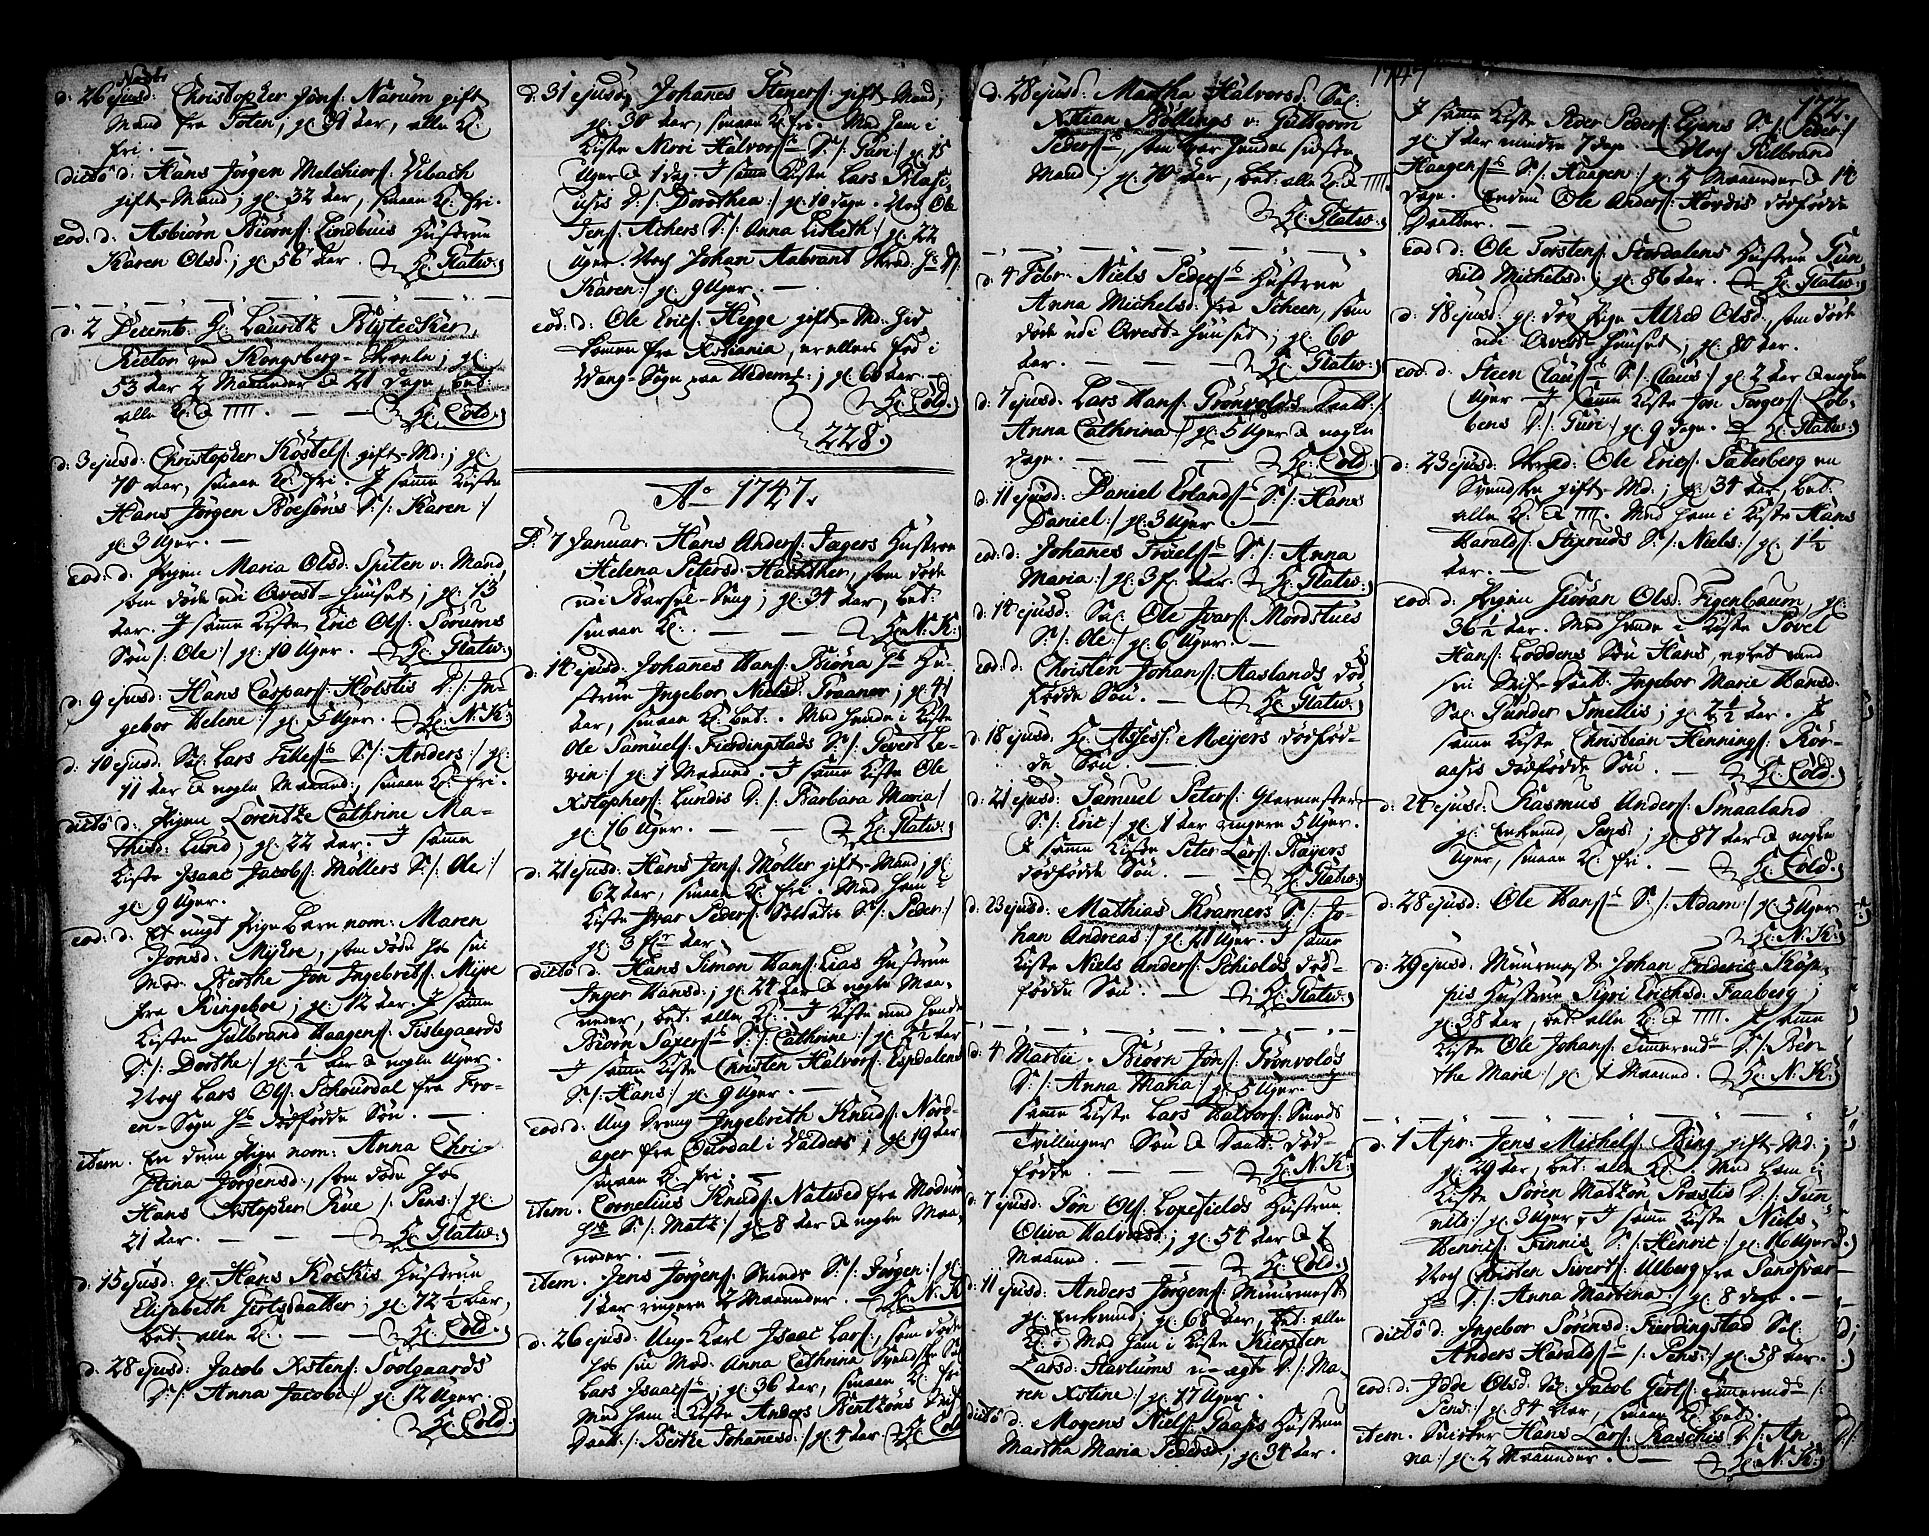 Novbr.
d: 26 ejusd: Christopher Jons: Narum gift
Mand fra Toten; gl: 39 aar, alle Kl:
fri. —
ditto d: Hans Jörgen Melchiors: Vibach
gift-Mand; gl: 32 aar, smaae Kl: fri.
eod: d: Asbiörn Biörns: Lindbuus Hustrue
Karen Olsd:; gl: 56 aar. Hr: Flatw:
d: 2 Decemb: Hr: Lauritz Blytecker,
Rector ved Kongsberg-Skoele; gl:
53 aar 2 Maaneder & 21 dage, bet:
alle Kl: & — — Hr: Cold.
d: 3 ejusd: Christopher Köstels: gift-Md:; gl:
70 aar, smaae Kl: fri. I samme Kiste
Hans Jörgen Boesöns D: /: Karen :/
gl: 3 Uger. —
eod: d: Pigen Maria Olsd: Spiten v: Mand,
som döde udi Qvest-Huuset; gl: 73
aar. I samme Kiste Eric Ols: Sörums
Sön /: Ole :/ gl: 10 Uger. Hr: Flatw:
d: 9 ejusd: Hans Caspars: Holstis D: /: In-
gebor Helene :/ gl: 5 Uger. Hr: N: K:
d: 10 ejusd: Sal: Lars S: /: Anders :/ gl:
11 aar & nogle Maaned: smaae Kl: fri.
ditto d: Pigen Lorentze Cathrine Ma-
thisd: Lund; gl: 22 aar. I samme
Kiste Isaac Jacobs: Möllers S: /: Ole :/
gl: 9 Uger.
eod: d: Et ungt Pige Barn nom: Maren
Jonsd: Myhre, som döde hos sin
Mod: Berthe Jon Ingebrets: Myre
fra Ringeboe; gl: 12 aar. I samme
Kiste Gulbrand Haagens: Fislegaards
D: /: Dorthe :/ gl: 1/2 aar & nogle Uger.
Noch Lars Ols: Schousdal fra Fro-
en-Sogn Hs dödfödde Sön. —
item. En dum Pige nom: Anna Chri-
stina Jörgensd:, som döde hos
Hans Xstopher Rue /: Pens :/ gl:
21 aar. — — Hr: Flatw:
d: 15 ejusd: gl: Hans Kockis Hustrue
Elisabeth Giertsdaatter; gl: 72 1/2 aar,
bet: alle Kl: — — Hr: Cold.
d: 28 ejusd: Jacob Xstens: Soolgaards
D: /: Anna Jacobe :/ gl: 12 Uger.
Hr: Cold.
d: 31 ejusd: Johannes Steners: gift-Mand;
gl: 30 aar, smaae Kl: fri. Med ham i
Kiste Niri Halvors: D: /: Guri :/ gl: 15
Uger & 1 dag. I samme Kiste Lars Blasi-
usis D: /: Dorothea :/ gl: 10 dage. Noch Ole
Jens: Achers D: /: Anna Lisbeth :/ gl: 22
Uger. Noch Johan Aabrant Hs D: /:
Karen :/ gl: 9 Uger. —
eod: d: Ole Erics: Hegge gift-Md: hid
kommen fra Xstiania, er ellers föd i
Wang-Sogn paa Hedem:; gl: 60 aar —
Hr: Cold.
228.
Ao 1747.
D: 7 Januar: Hans Anders: Jægers Hustrue
Helena Petersd: Hachther, som döde
udi Barsel-Seng; gl: 34 aar, bet:
smaae Kl: — — Hr: N: K:
d: 14 ejusd: Johannes Hans: Biöna Hs Hu-
strue Ingebor Nielsd: Fraaner; gl: 41
aar, smaae Kl: bet: . Med hende i Kiste
Ole Samuels: Fierdingstads S: /: Gevert Le-
vin :/ gl: 1 Maaned. I samme Kiste Ole
Xstophers: Lundis D: /: Barbara Maria :/
gl: 16 Uger. — — Hr: Flatw:
d: 21 ejusd: Hans Jens: Möller gift-Mand; gl:
62 aar, smaae Kl: fri. Med ham i
Kiste Ivar Peders: Soldats S: /: Peder :/
gl: 3 aar
ditto d: Hans Simon Hans: Lias Hustrue
Inger Hansd:; gl: 24 aar & nogle Maa-
neder, bet: alle Kl: . I Kiste med hende
Biörn Tapers: D: /: Cathrine :/ gl: aar
I samme Kiste Christen Halvors: Espdalens
S: /: Hans :/ gl: 9 Uger.
eod: d: Ung Dreng Ingebreth Knuds: Nord-
ager fra Ourdal i Valders; gl: 19 aar,
smaae Kl: fri. —
item. Cornelius Knuds: Natvid fra Modum
hs S: /: Matz :/ gl: 8 aar & nogle Maa-
neder. —
item. Jens Jörgens: Smeds S: /: Jörgen :/ gl:
1 aar ringere 2 Maaneder. — Hr: N: K:
d: 26 ejusd: Ung-Karl Isaac Lars:, som döde
hos sin Mod: Anna Cathrina Svends: Sal:
Lars Isaacs:; gl: 36 aar, smaae Kl: fri
Med ham i Kiste Anders Bentzöns Stif-
daatt: /: Berthe Johannesd: :/ gl: 4 aar Hr: Cold
1747
172.
d: 28 ejusd: Martha Halvorsd: Sal:
Xstian Böllings v: Guttorm
Peders:, som var hendes sidste
Mand; gl: 70 aar, bet: alle Kl: &
Hr: Flatw:
d: 4 Febr: Niels Peders: Hustrue
Anna Michelsd: fra Scheen, som
döde udi Qvest-Huuset; gl: 60
aar. — — Hr: Flatw:
d: 7 ejusd: Lars Hans: Grönvolds Daatt: /:
Anna Cathrina :/ gl: 5 Uger & nogle
dage. — — Hr: Cold.
d: 11 ejusd: Daniel Erlands: S: /: Hans
Daniel :/ gl: 3 Uger —
eod: d: Johanes Troels: D: /: Anna
Maria :/ gl: 3 aar. Hr: Flatw:
d: 14 ejusd: Sal: Ole Ivars: Mordstues
S: /: Ole :/ gl: 6 Uger. —
eod: d: Christen Johans: Aaslands död
födde Sön. — Hr: Flatw:
d: 18 ejusd: Hr: Assess: Meyers dödföd-
de Sön. —
d: 21 ejusd: Samuel Peters: Glarmesters
S: /: Eric :/ gl: 1 aar ringere 5 Uger.
I samme Kiste Peter Lars: Bayers
dödfödde Sön. — Hr: Flatw:
d: 23 ejusd: Mathias Kramers S: /: Jo-
han Andreas :/ gl: 21 Uger. I samme
Kiste Niels Anders: Schiolds död-
födde Sön. — Hr: Flatw:
d: 4 Martii. Biörn Jons: Grönvolds
D: /: Anna Maria :/ gl: 5 Uger. I
samme Kiste Lars Halvors: Smeds
Tvillinger Sön & Daatt: död-
födde. — — Hr: N: K:
d: 7 ejusd: Jon Ols: Lopefields Hustrue
Oliva Halvorsd:; gl: 54 aar & 1
Maaned. — — Hr: Cold.
d: 11 ejusd: Anders Jörgens: Muurmest:
gl: Enkemd; gl: 68 aar, bet: alle
Kl: Med ham i Kiste Kiersten
Larsd: Starlums u-ægte D: /: Ma-
ren Xstine :/ gl: 17 Uger.
ditto d: Mogens Niels: Gaasis Hustrue
Martha Maria Pedersd:; gl: 34 aar.
I samme Kiste Peder Peders: Ejens S: /: Peder :/
gl: 1 aar mindre 7 dage — Noch Gulbrand
Haagens: S: /: Haagen :/ gl: 2 Maaneder & 14
dage. Endnu Ole Anders: Hordis dödfödde
Daatter. —
eod: d: Ole Torstens: Stordalens Hustrue Gun
nild Michelsd:; gl: 86 aar. Hr: Flatw:
d: 18 ejusd: gl: döv Pige Alhed Olsd:, som döde
udi Qvest-Huuset; gl: 80 aar.
eod: d: Steen Claus: S: /: Claus :/ gl: 2 aar & nogle
Uger — I samme Kiste Jon Torgers: Lob-
bens D: /: Guri :/ gl: 9 dage. Hr: Flatw:
d: 23 ejusd: Ole Erics: Säterberg en
Svenske gift-Md:; gl: 34 aar, bet:
alle Kl: & Med ham i Kiste Hans
Haralds: Stiprudis S: /: Niels :/ gl: 1 1/2
aar. —
eod: d: Pigen Giöran Olsd: Figenbaum, gl:
36 1/2 aar. Med hende i Kiste Povel
Hans: Loddens Sön Hans ægtet med
sin Stif-Daatt: Ingebor Marie Hansd:
Sal: Gunder Smellis; gl: 2 1/2 aar. I
samme Kiste Christian Hennings: Kor-
aasis dödfödde Sön. — Hr: Cold.
d: 24 ejusd: Rasmus Anders: Smaaland
gl: Enkemd, Pens:; gl: 87 aar & nogle
Uger, smaae Kl: fri. — Hr: Cold.
d: 28 ejusd: Ole Hans: S: /: Adam :/ gl: 3 Uger
Hr: N: K:
d: 29 ejusd: Muurmest: Johan Frideric Köp-
pis Hustrue Sigri Erichsd: Faaberg;
gl: 38 aar, bet: alle Kl: & I samme
Kiste Ole Johans: Timermds D: /: Ber-
the Marie :/ gl: 1 Maaned. Hr: N: K:
d: 1 Apr: Jens Michels: Bing gift-Md:;
gl: 29 aar, bet: alle Kl: . Med ham i
Kiste Sören Matzön Præstis D: /: Gun
nild :/ gl: 3 Uger, I samme Kiste Niels
Henrics: Finnis S: /: Henric :/ gl: 16 Uger
Noch Christen Siverts: Ulberg fra Sandsvær
hs D: /: Anna Martina :/ gl: 8 dage. —
ditto d: Ingebor Sörensd: Fierdingstad Sal:
Anders Haralds: /: Pens :/ gl: 58 aar.
eod: d: Jöde Olsd: Sal: Jacob Giers: Timermds /:
Pens :/ gl: 84 aar, smaae Kl: bet:
item. Hans Lars: Raschis D: /: An
na :/ gl: 2 Maaneder. — Hr: N: K: